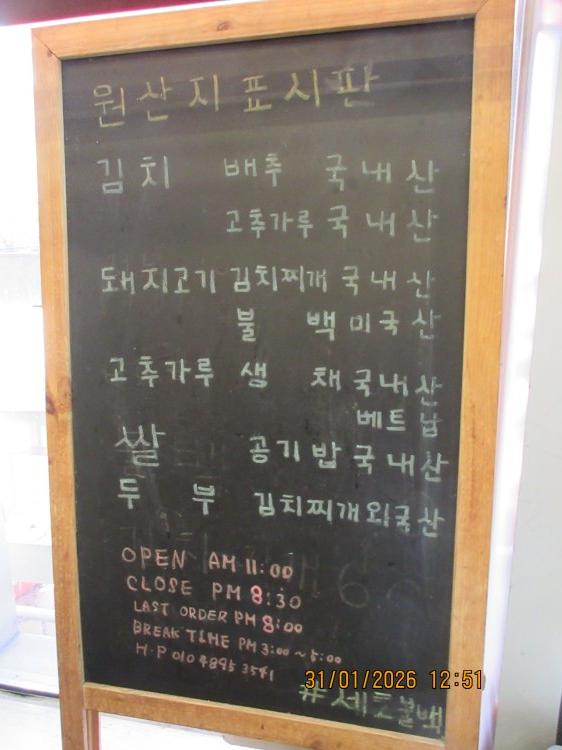 원산지표시판
김치 배추 국내산
고추가루 국내산
돼지고기 김치찌개 국내산
불백 미국산
고추가루 생채 국내산
베트남
쌀 공기밥 국내산
두부 김치찌개 외국산
OPEN AM 11:00
CLOSE PM 8:30
LAST ORDER PM 8:00
BREAK TIME PM 3:00 ~ 5:00
H·P 010 4895 3541
31/01/2026 12:51
#세호불백